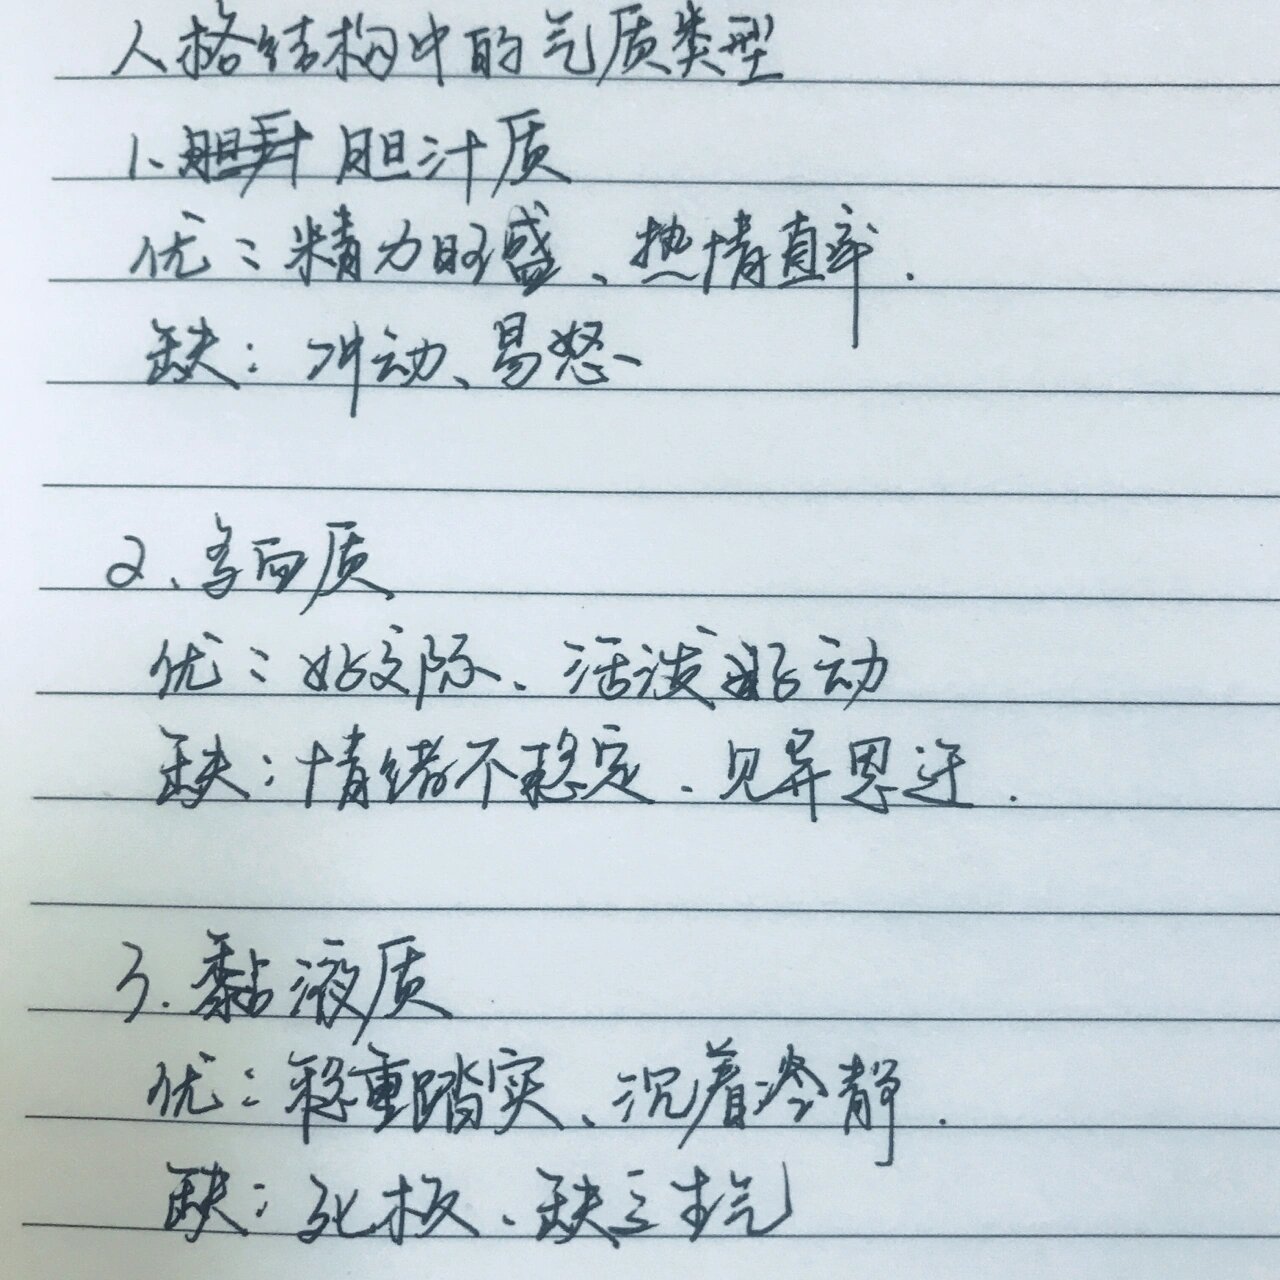 人格结构中的气质类型
1、胆汁质
优：精力旺盛、热情直率.
缺：冲动、易怒
2、多血质
优：好交际、活泼好动
缺：情绪不稳定、见异思迁.
3.黏液质
优：稳重踏实、沉着冷静.
缺：死板、缺乏生气